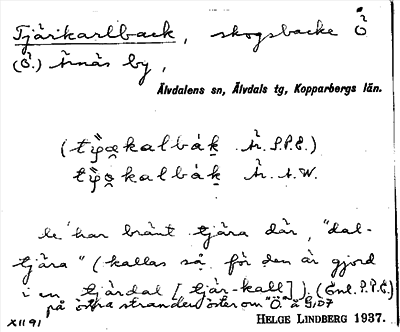 Tjärkarlback, skogsbacke Ö
(Ö.) Åsnäs by,
Älvdalens sn, Älvdals tg, Kopparbergs län.
kalbák Är. P.P.E.)
kalbák Är. A.W.
le har bränt tjära där, "dal-
tjära" (kallas så för den är gjord
i en tjärdal [tjär-kall]). (Enl. P.P.E.)
på östra stranden öster om "Ö" å G,07
XII 91 HELGE LINDBERG 1937.